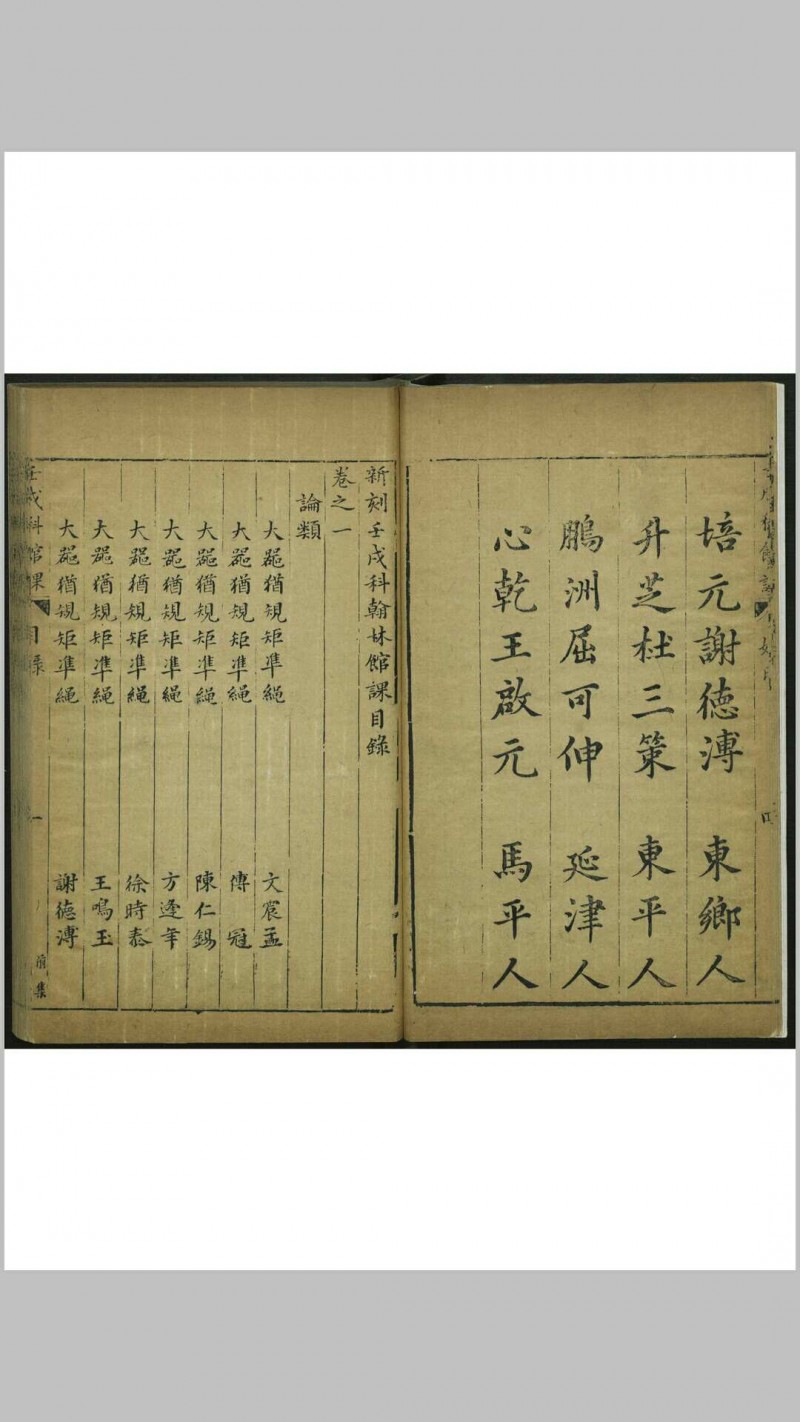 培元謝德溥 東鄉人
升芝杜三策 東平人
鵬洲屈可伸 延津人
心乾王啟元 馬平人
新刻壬戌科翰林館課目錄
卷之一
論類
大噐猶規矩凖繩 文震孟
大噐猶規矩凖繩 傅冠
大噐猶規矩凖繩 陳仁錫
大噐猶規矩凖繩 方逢年
大噐猶規矩凖繩 徐時泰
大噐猶規矩凖繩 王鳴玉
大噐猶規矩凖繩 謝德溥
壬戌科館課 目錄 一